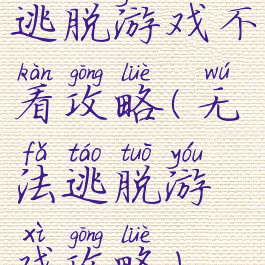 逃脱游戏不
kàn gōng lüè wú
看攻略(无
fǎ táo tuō yóu
法逃脱游
xì gōng lüè
戏攻略)